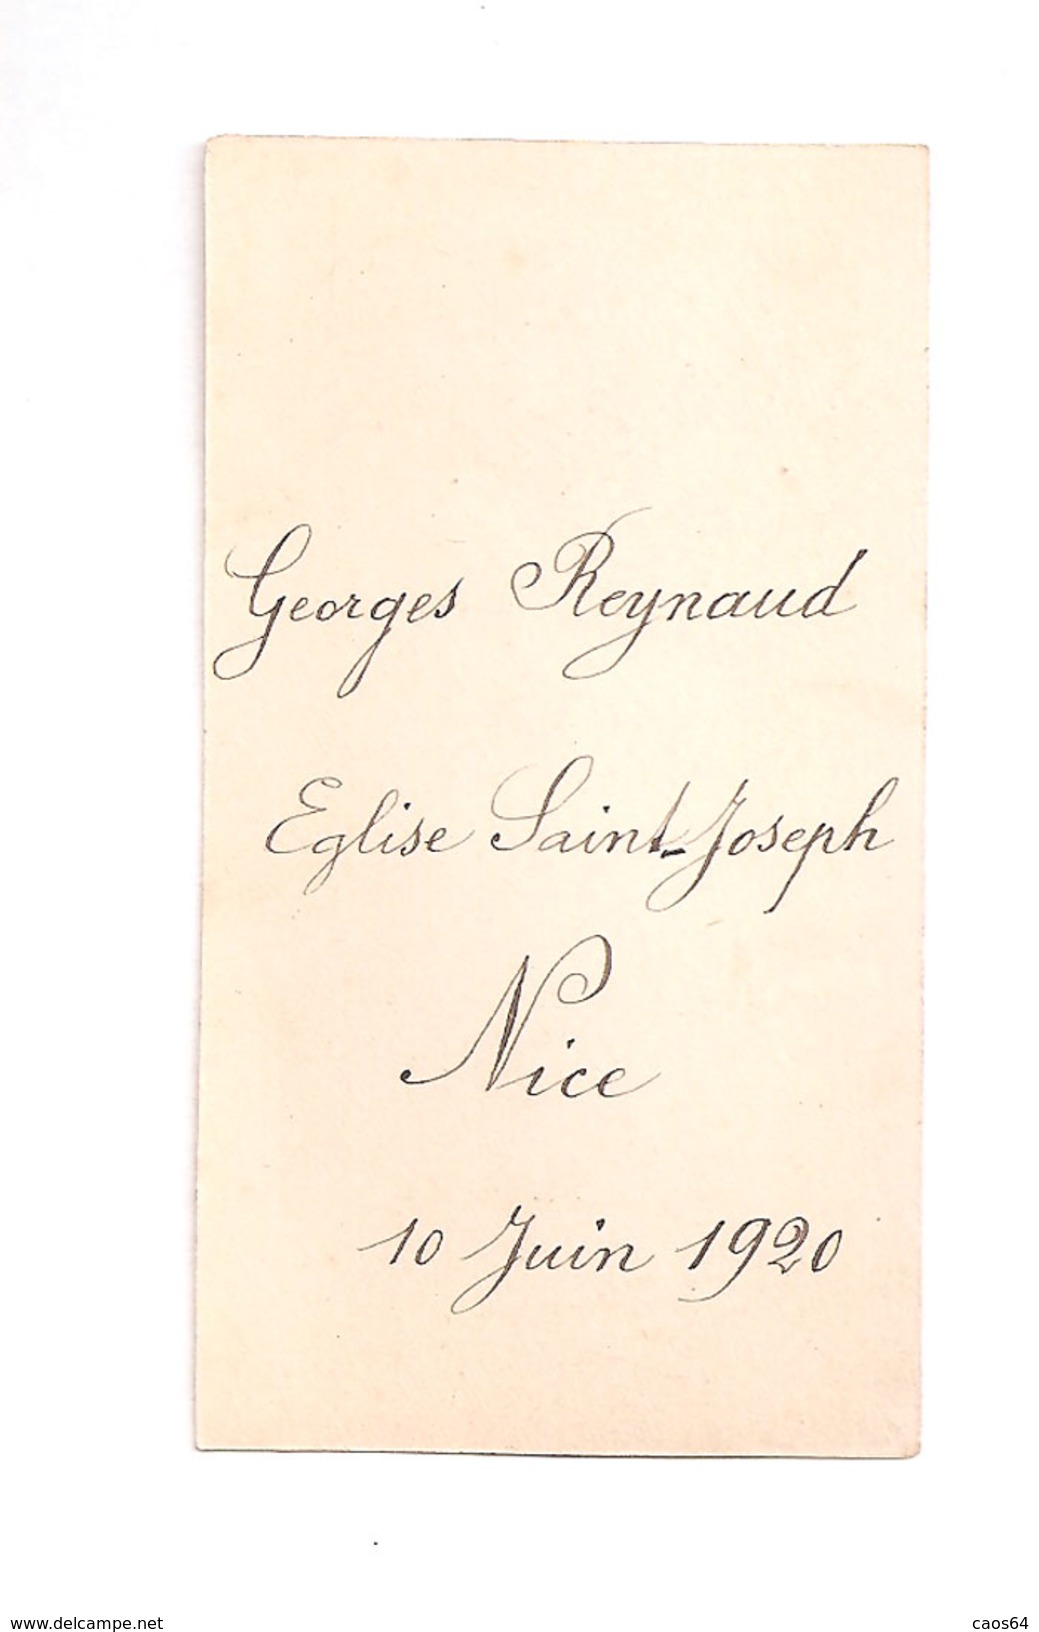 Georges Reynaud
Eglise Saint-Joseph
Nice
10 Juin 1920
www.delcampe.net
caos64